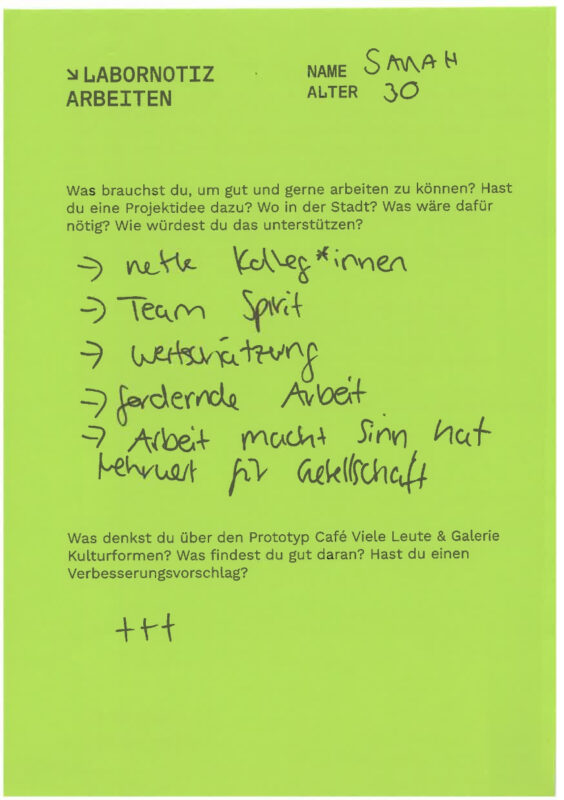 ↘ LABORNOTIZ
ARBEITEN
NAME SARAH
ALTER 30
Was brauchst du, um gut und gerne arbeiten zu können? Hast
du eine Projektidee dazu? Wo in der Stadt? Was wäre dafür
nötig? Wie würdest du das unterstützen?
→ nette Kolleg*innen
→ Team Spirit
→ Wertschätzung
→ fordernde Arbeit
→ Arbeit macht Sinn hat
Mehrwert für Gesellschaft
Was denkst du über den Prototyp Café Viele Leute & Galerie
Kulturformen? Was findest du gut daran? Hast du einen
Verbesserungsvorschlag?
+++